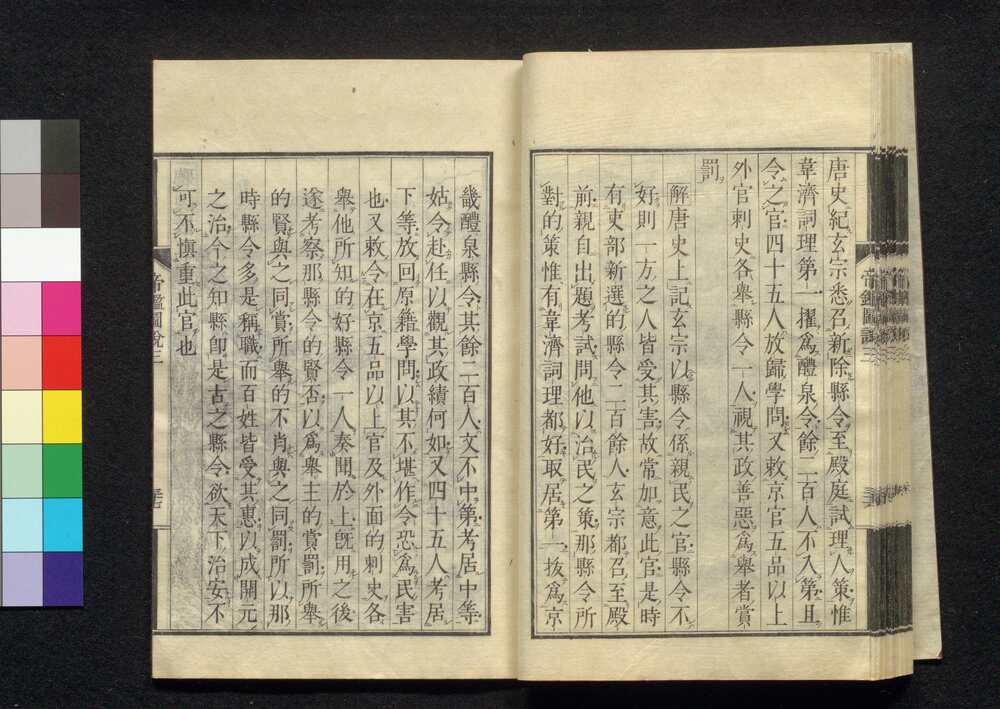 唐史紀玄宗悉召新除縣令至殿庭試理人策惟
韋濟詞理第一擢為醴泉令餘二百人不入第且
令之官四十五人放歸學問又敕京官五品以上
外官刺史各舉縣令一人視其政善惡為舉者賞
罰
解唐史上記玄宗以縣令係親民之官縣令不
好則一方之人皆受其害故常加意此官是時
有吏部新選的縣令二百餘人玄宗都召至殿
前親自出題考試問他以治民之策那縣令所
對的策惟有韋濟詞理都好取居第一拔為京
畿醴泉縣令其餘二百人文不中第考居中等
姑令赴任以觀其政績何如又四十五人考居
下等放回原籍學問以其不堪作令恐為民害
也又敕令在京五品以上官及外面的刺史各
舉他所知的好縣令一人奏聞於上既用之後
遂考察那縣令的賢否以為舉主的賞罰所舉
的賢與之同賞所舉的不肖與之同罰所以那
時縣令多是稱職而百姓皆受其惠以成開元
之治今之知縣即是古之縣令欲天下治安不
可不慎重此官也
帝鑑圖說三